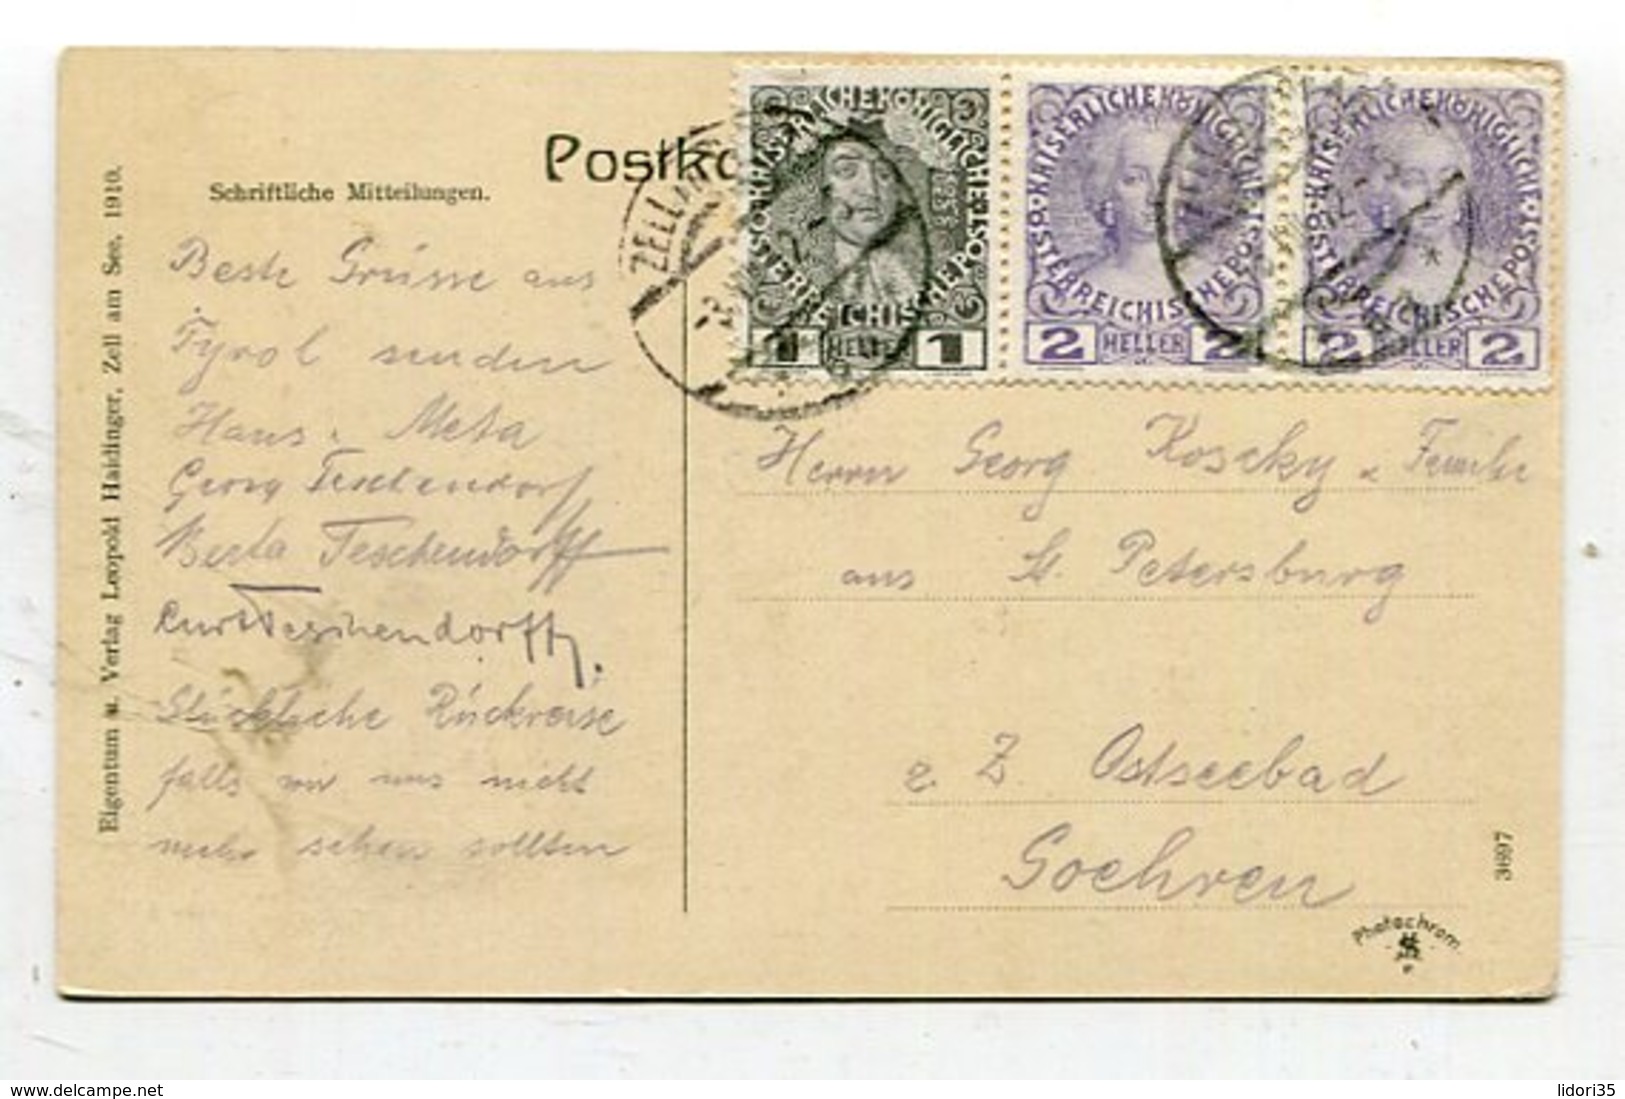 Postka
Schriftliche Mitteilungen.
Eigentum u. Verlag Leopold Haidinger, Zell am See. 1910.
Beste Grüsse aus
Tyrol senden
Hans u. Meta
Georg Teschendorff
Berta Teschendorff
Curt Teschendorff.
Glückliche Rückreise
falls wir uns nicht
mehr sehen sollten
KAISERLICHE KÖNIGLICHE ÖSTERREICHISCHE POST
1 HELLER 1
KAISERLICHE KÖNIGLICHE ÖSTERREICHISCHE POST
2 HELLER 2
KAISERLICHE KÖNIGLICHE ÖSTERREICHISCHE POST
2 HELLER 2
ZELL AM
Herrn Georg Koszky u Familie
aus St. Petersburg
z. Z Ostseebad
Goehren
3697
Photochrom
lidori35